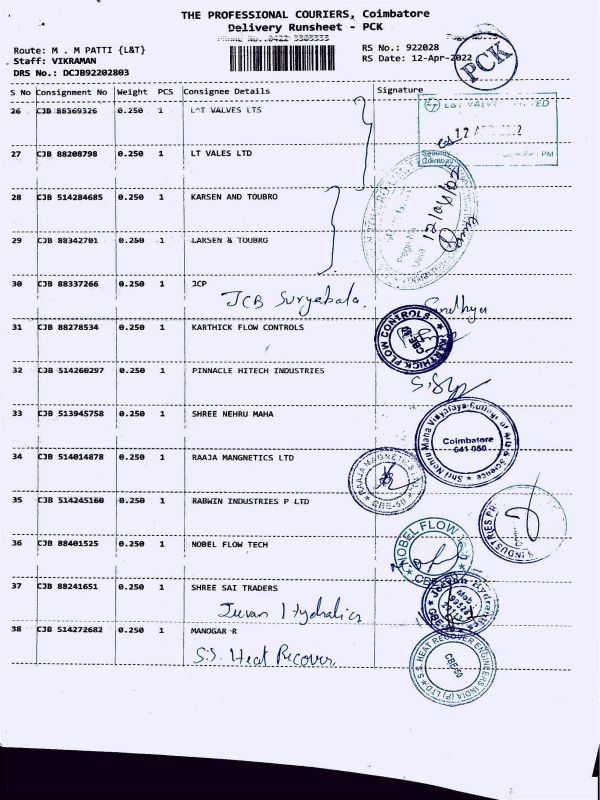 THE PROFESSIONAL COURIERS, Coimbatore
Delivery Runsheet - PCK
Phone No.:0422 3303333
Route: M . M PATTI {L&T}
RS No.: 922028
PCK
Staff: VIKRAMAN
RS Date: 12-Apr-2022
DRS No.: DCJB92202803
S No Consignment No Weight PCS Consignee Details Signature
26 CJB 88369326 0.250 1 L&T VALVES LTS
L&T VALVE
27 CJB 88208798 0.250 1 LT VALES LTD
Security
28 CJB 514284685 0.250 1 KARSEN AND TOUBRO
12/04/02
29 CJB 88342701 0.250 1 LARSEN & TOUBRO
30 CJB 88337266 0.250 1 JCP
JCB Suryabala.
Sandhya
31 CJB 88278534 0.250 1 KARTHICK FLOW CONTROLS
KARTHICK FLOW CONTROLS
CBE
32 CJB 514260297 0.250 1 PINNACLE HITECH INDUSTRIES
33 CJB 513945758 0.250 1 SHREE NEHRU MAHA
Shri Nehru Maha Vidyalaya College of Arts & Science
Coimbatore
641 050
34 CJB 514014878 0.250 1 RAAJA MANGNETICS LTD
RAAJA MAGNETICS
CBE-50
35 CJB 514245160 0.250 1 RABWIN INDUSTRIES P LTD
INDUSTRIES
36 CJB 88401525 0.250 1 NOBEL FLOW TECH
NOBEL FLOW
CBE-50
37 CJB 88241651 0.250 1 SHREE SAI TRADERS
Jeevan Hydralics
CBE-50
38 CJB 514272682 0.250 1 MANOGAR R
S.S. Heat Recover
S.S. HEAT RECOVER ENGINEERS INDIA (P) LTD
CBE-50